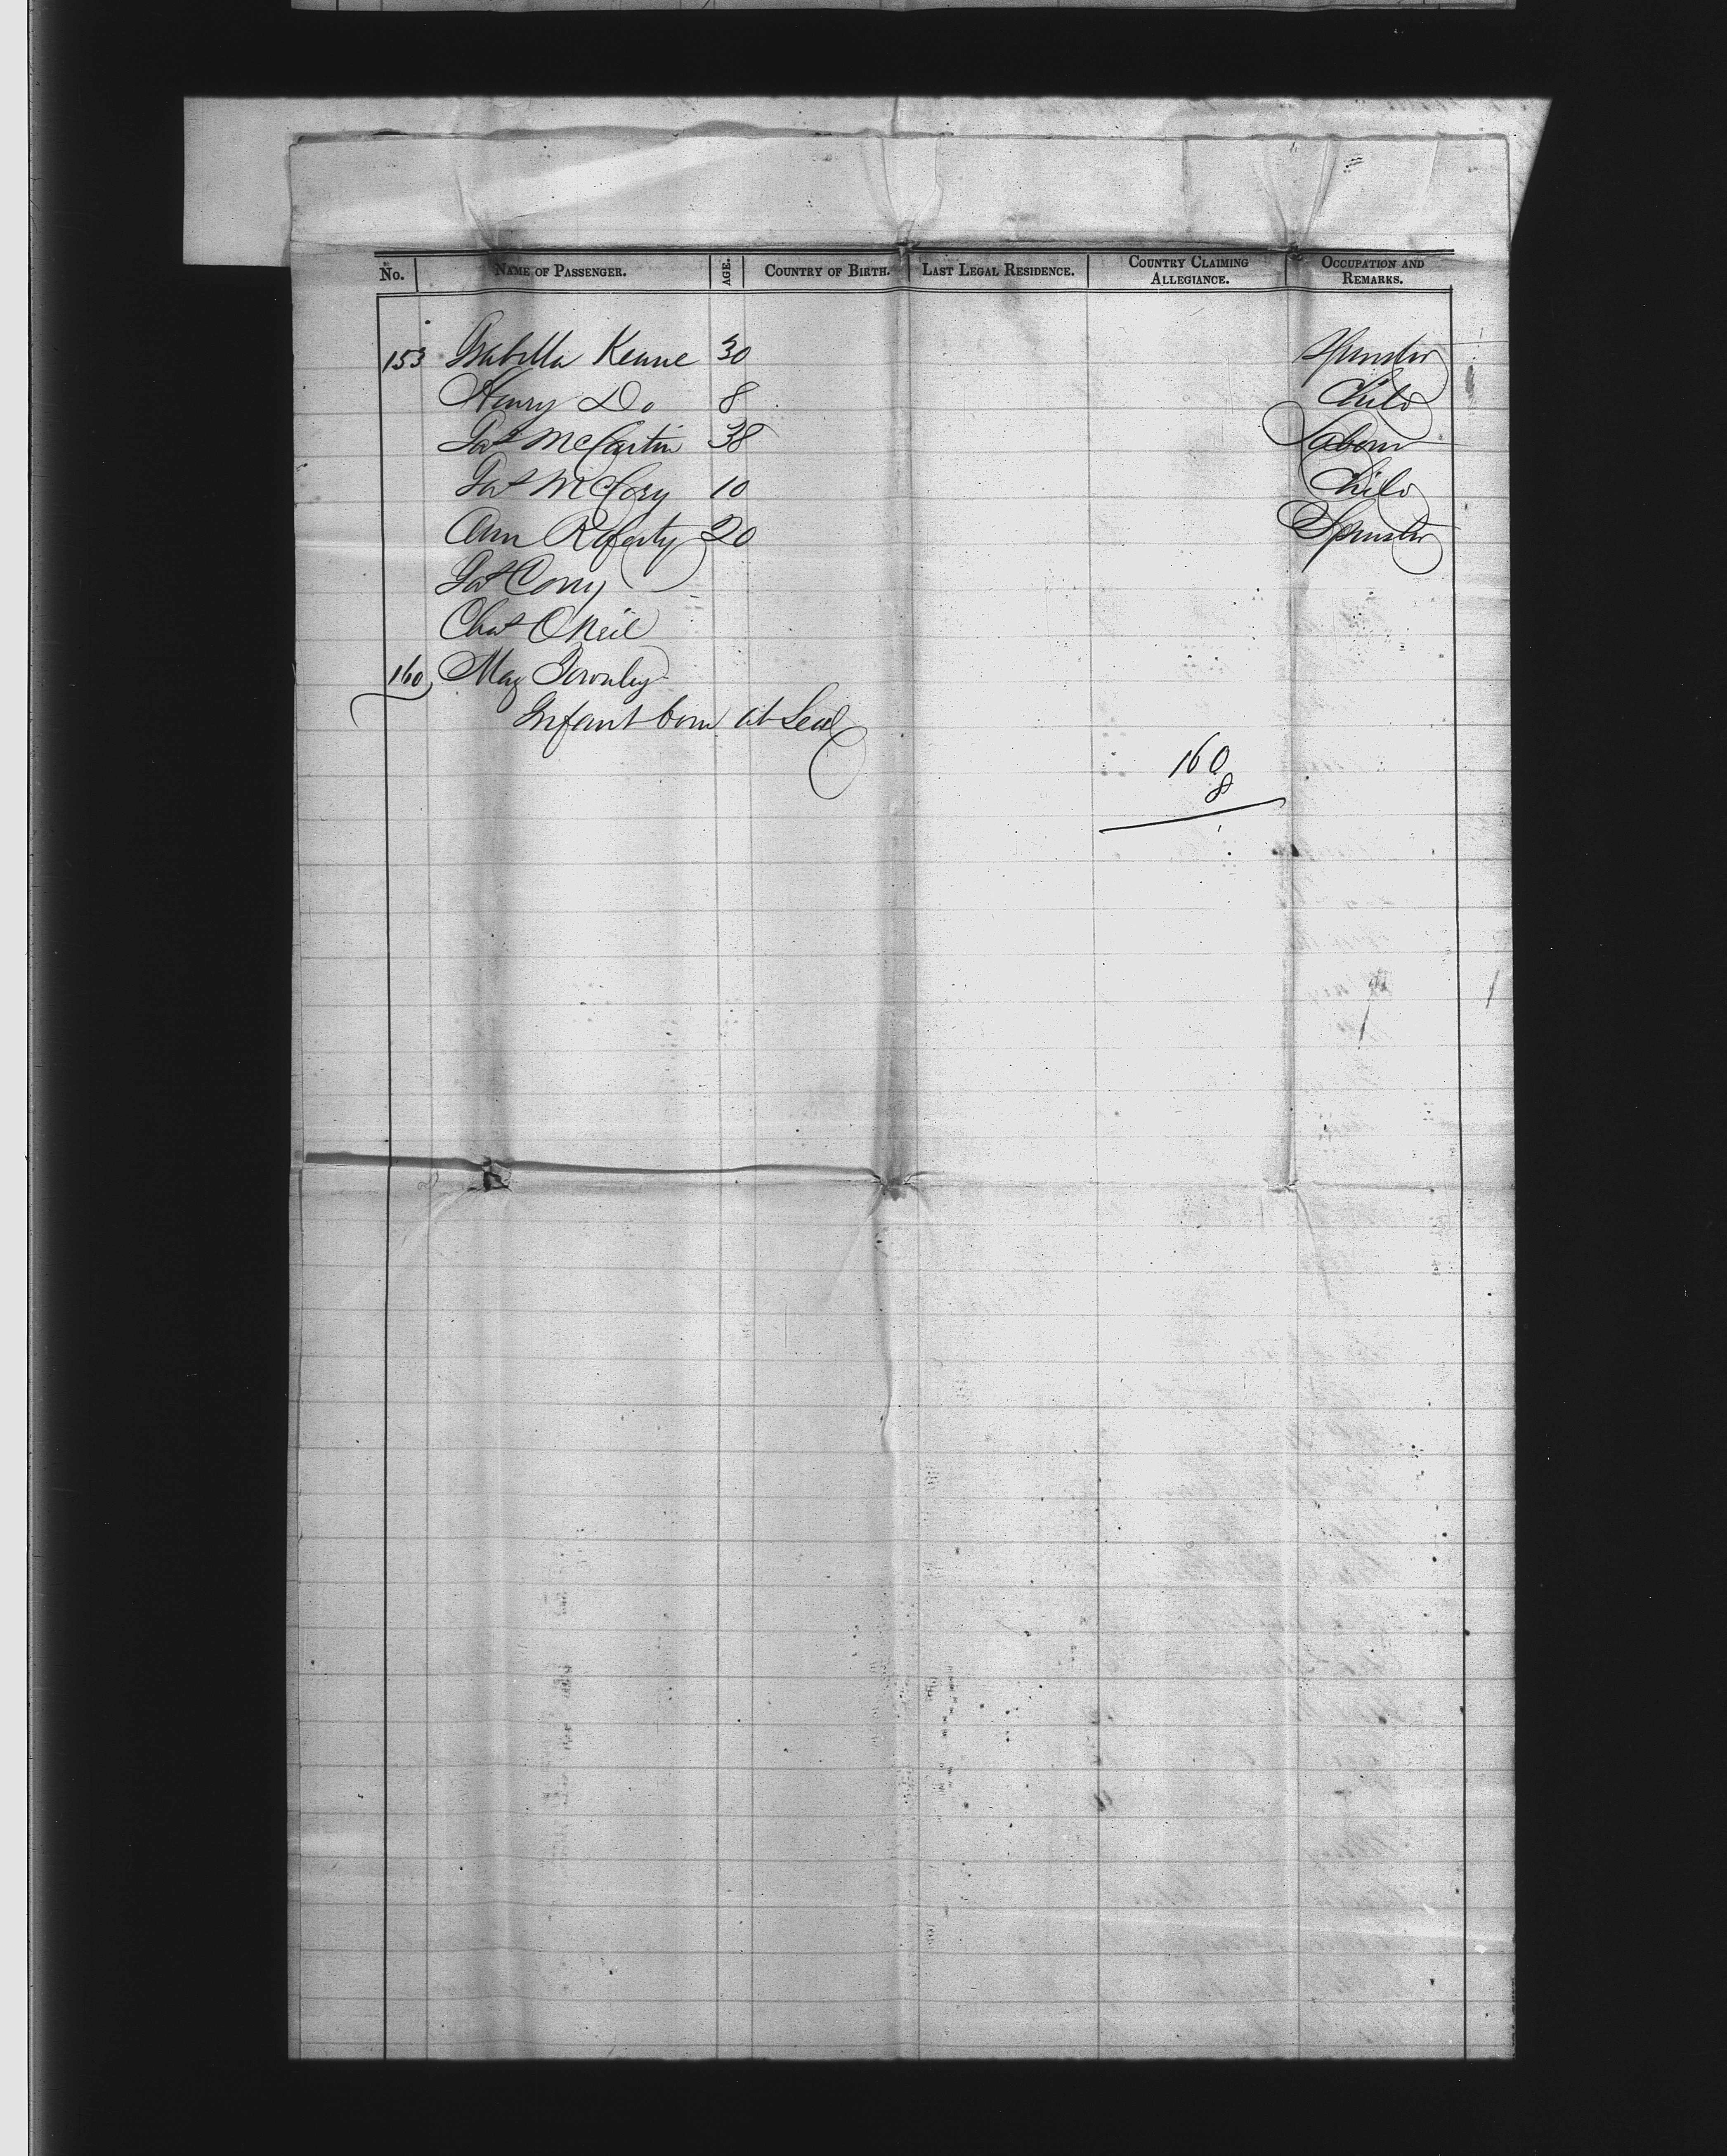 No. NAME OF PASSENGER. AGE. COUNTRY OF BIRTH. LAST LEGAL RESIDENCE. COUNTRY CLAIMING ALLEGIANCE. OCCUPATION AND REMARKS.
153 Isabella Keane 30 Spinster
Henry Do 8 Child
Pat McCartin 38 Laborer
Pat McCory 10 Child
Ann Raferty 20 Spinster
Pat Corry
Chas O Neil
160 May Townley
Infant born at Sea
160
8